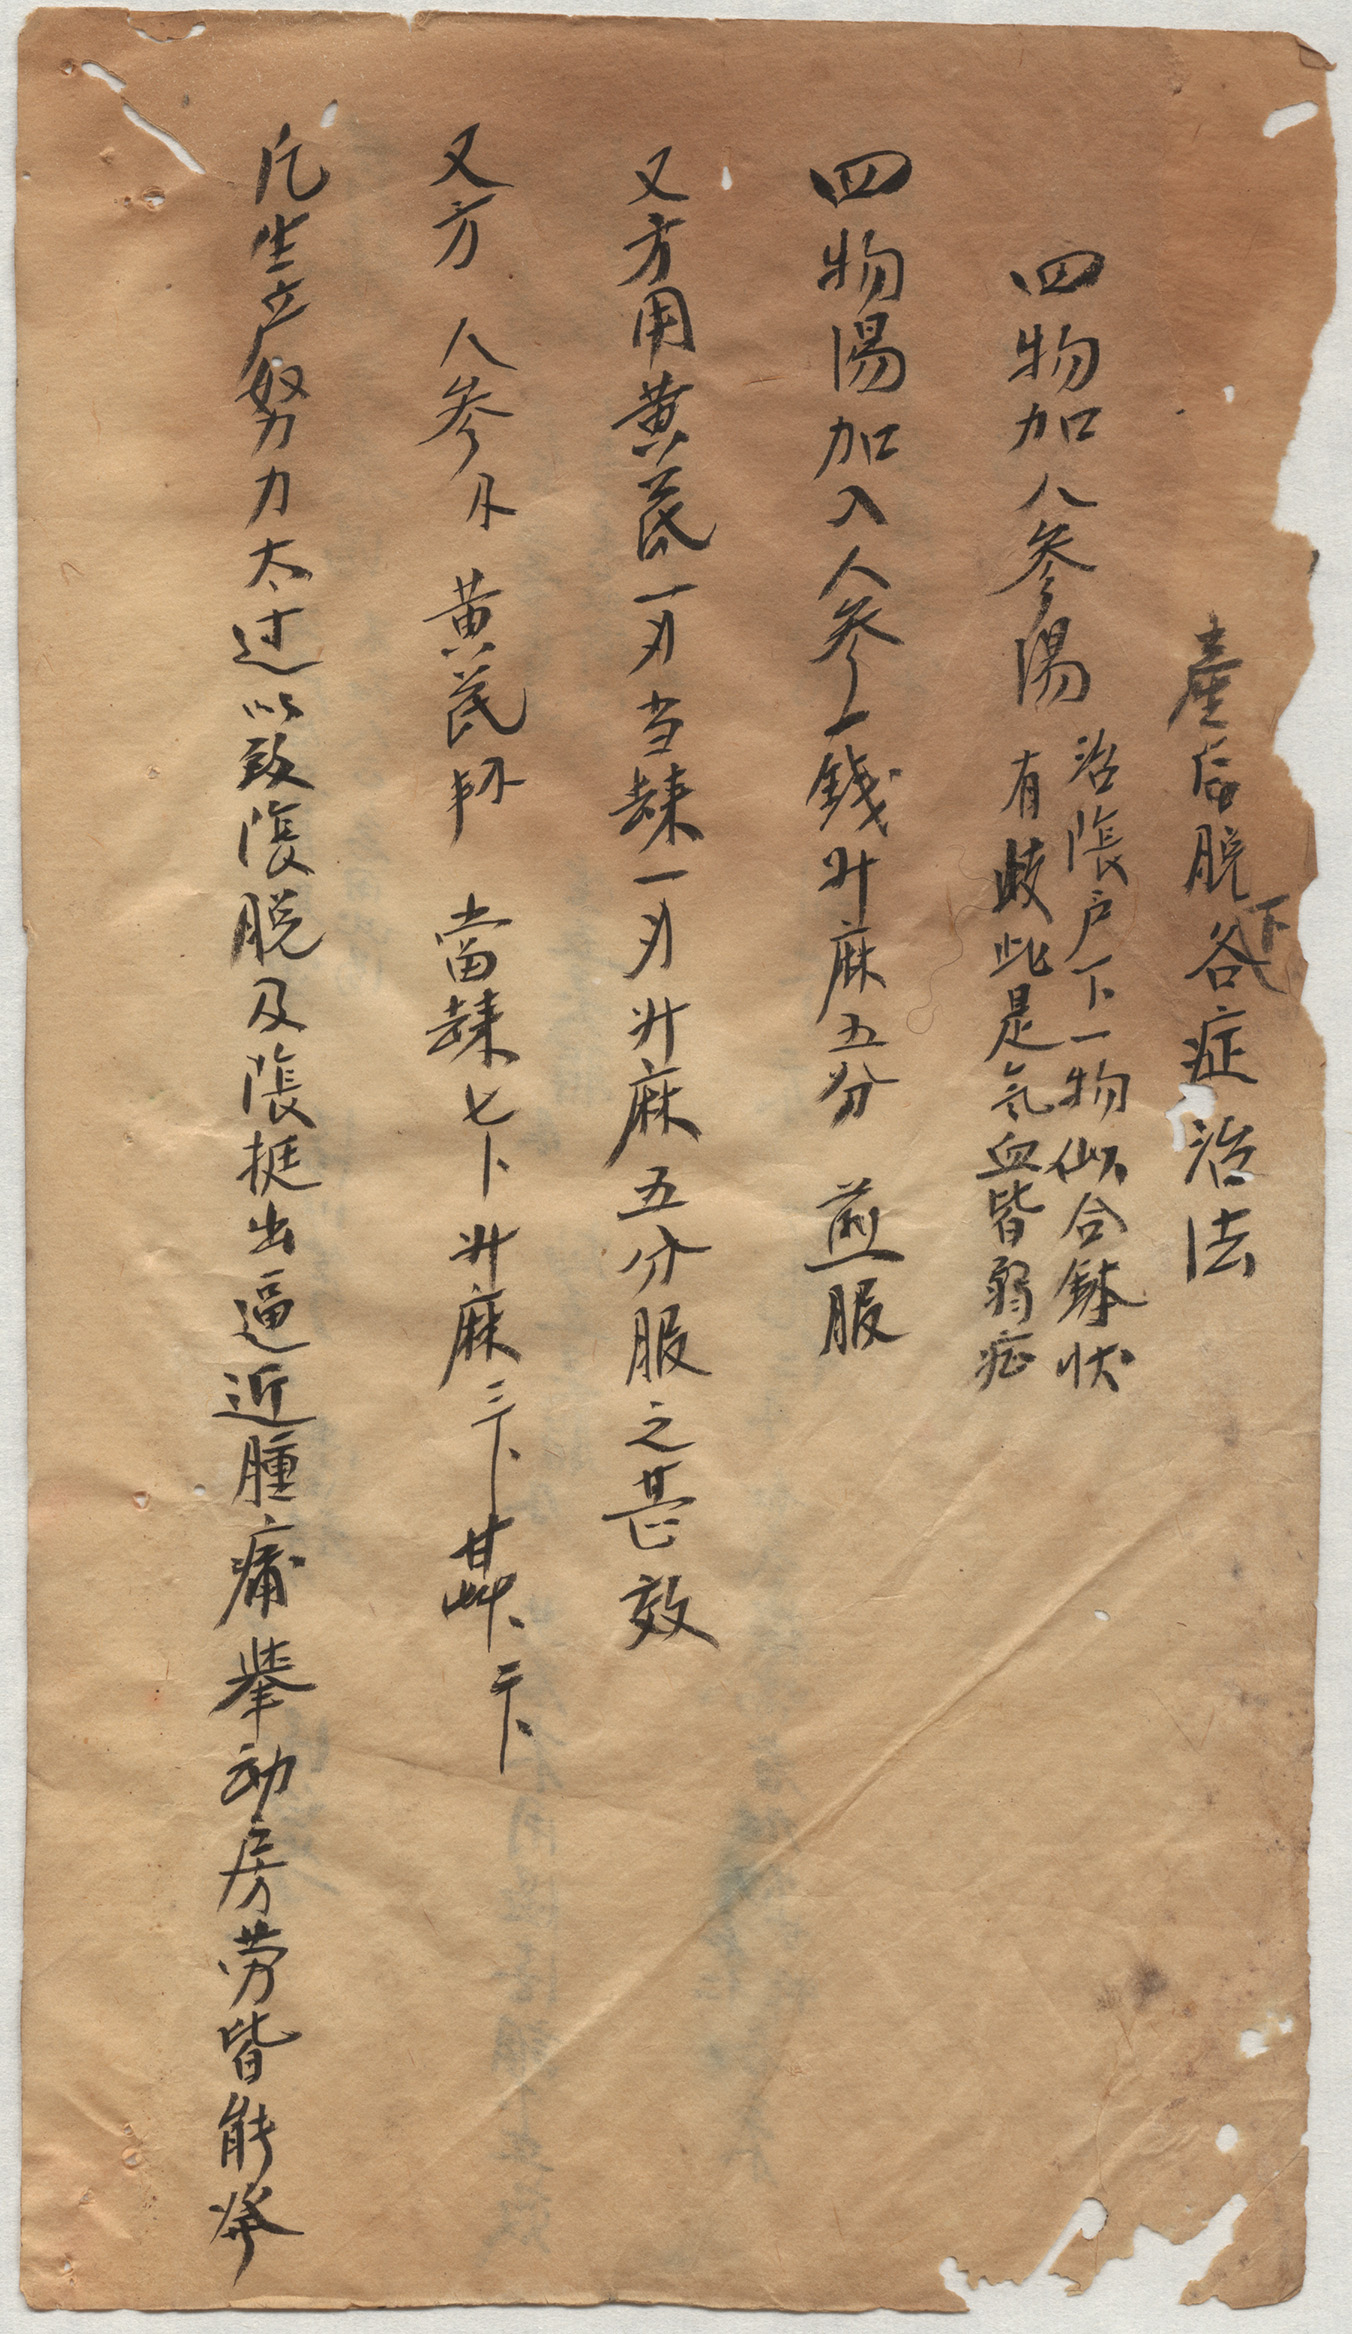 產后脱下各症治法
四物加人参湯
治陰户下一物似合鉢状
有歧此是氣血皆弱症
四物湯加入人参一錢升麻五分 煎服
又方用黄芪一刃当歸一刃升麻五分服之甚效
又方 人参 黄芪 當歸七卜升麻三卜甘草二卜
凡生产努力太过以致陰脱及陰挺出逼近腫痛举动房劳皆能發